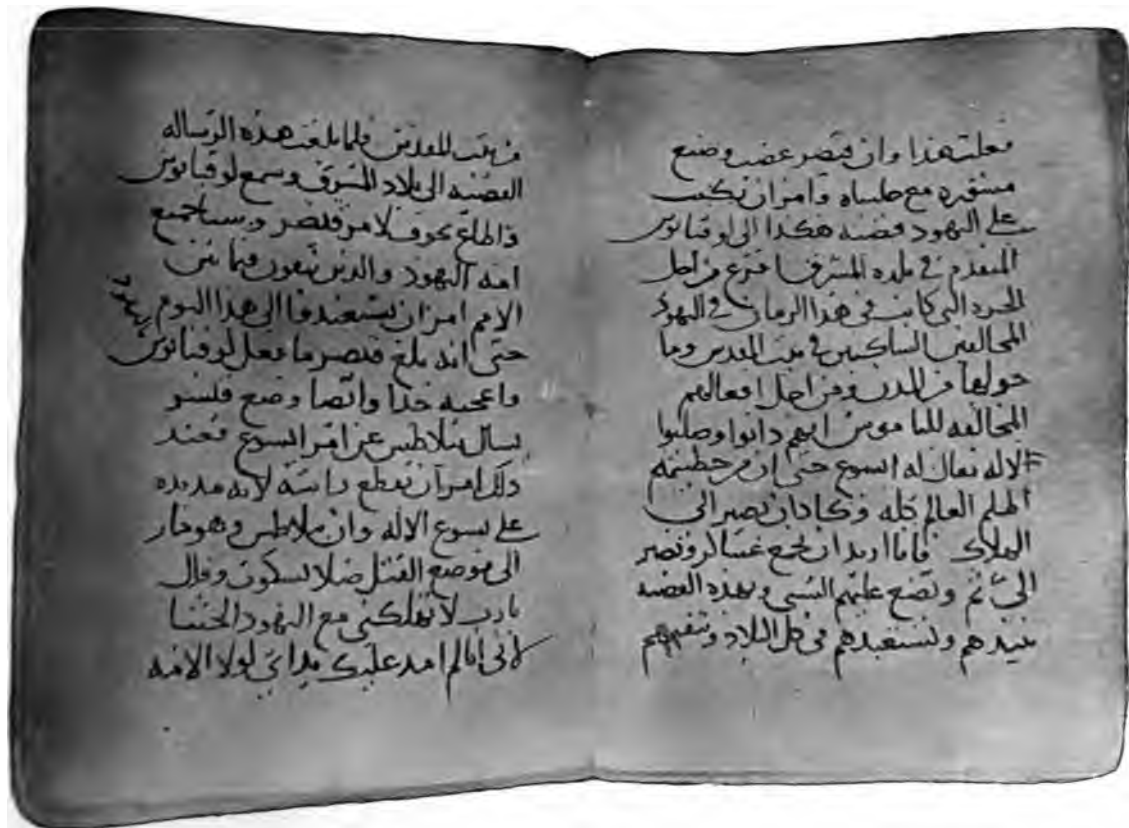 فعلت هذا وان قيصر غضب وصنع
مشوره مع جلساه وامر ان يكتب
على اليهود قضيه هكذا الى لوقيانوس
المتقدم في بلده المشرق من اجل
التي كانت في هذا الزمان في اليهود
المخالفين الساكنين في بيت المقدس وما
حولها من المدن ومن اجل افعالهم
المخالفه للناموس انهم دانوا وصلبوا
الاله يقال له ايسوع حتى ان من خطيتهم
اظلم العالم كله وكاد ان يصير الى
الهلاك فانا اريد ان تجمع عساكر وتصير
الى ثم وتضع عليهم السبي وبهذه القضيه
تبيدهم وتستعبدهم في كل البلاد وتنفيهم
فلما بلغت هذه الرساله
القضيه الى بلاد المشرق وسمع لوقيانوس
واطاع بخوف لامر قيصر وسبا جميع
امه اليهود والذين يبقون فيما بين
الامم امر ان يستعبدوا الى هذا اليوم
حتى انه بلغ قيصر ما فعل لوقيانوس
واعجبه جدا وايضا وضع
يسال بيلاطس عن امر ايسوع فعند
ذلك امر ان تقطع راسه لانه مد يده
على يسوع الاله وان بيلاطس وهو جار
الى موضع القتل صلا بسكون وقال
يارب لا تهلكني مع اليهود الخبثا
لاني انا لم امد عليك يداي لولا الامه